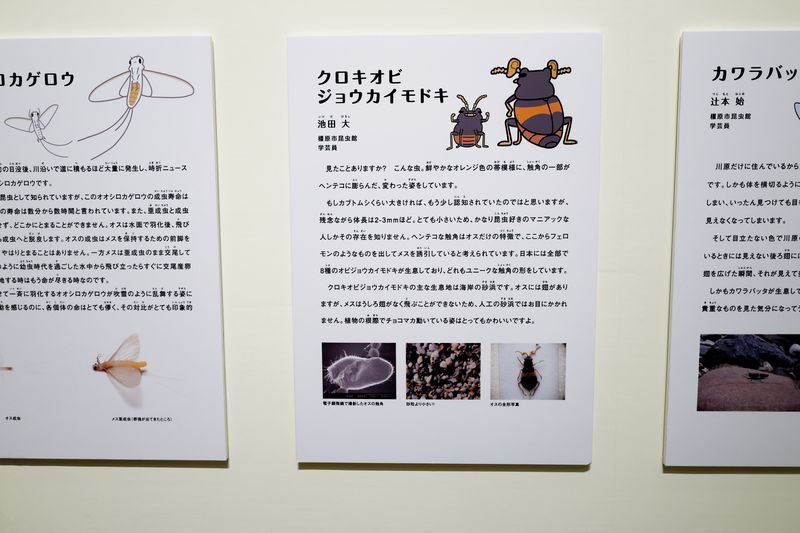 ロカゲロウ
の日没後、川沿いで道に積もるほど大量に発生し、時折ニュース
シロカゲロウです。
昆虫として知られていますが、このオオシロカゲロウの成虫寿命は
の寿命は数分から数時間と言われています。また、亜成虫と成虫
せず、どこかにとまることができません。オスは水面で羽化後、飛び
ら成虫へと脱皮します。オスの成虫はメスを保持するための前脚を
やはりとまることはありません。一方メスは亜成虫のまま交尾して
のように幼虫時代を過ごした水中から飛び立ったらすぐに交尾産卵
地する時はもう命が尽きる時なのです。
せて一斉に羽化するオオシロカゲロウが吹雪のように乱舞する姿に
動を感じるのに、各個体の命はとても儚く、その対比がとても印象的
オス成虫
メス亜成虫（卵塊が出てきたところ）
クロキオビ
ジョウカイモドキ
いけ だ ひろし
池田 大
橿原市昆虫館
学芸員
見たことありますか？ こんな虫。鮮やかなオレンジ色の帯模様に、触角の一部が
ヘンテコに膨らんだ、変わった姿をしています。
もしカブトムシくらい大きければ、もう少し認知されていたのではと思いますが、
残念ながら体長は2-3mmほど。とても小さいため、かなり昆虫好きのマニアックな
人しかその存在を知りません。ヘンテコな触角はオスだけの特徴で、ここからフェロ
モンのようなものを出してメスを誘引していると考えられています。日本には全部で
8種のオビジョウカイモドキが生息しており、どれもユニークな触角の形をしています。
クロキオビジョウカイモドキの主な生息地は海岸の砂浜です。オスには翅があり
ますが、メスはうしろ翅がなく飛ぶことができないため、人工の砂浜ではお目にかかれ
ません。植物の根際でチョコマカ動いている姿はとってもかわいいですよ。
電子顕微鏡で撮影したオスの触角
砂粒より小さい！
オスの全形写真
カワラバッ
つじ もと はじめ
辻本 始
橿原市昆虫館
学芸員
川原だけに住んでいるから
です。しかも体を横切るように
しまい、いったん見つけても目
見えなくなってしまいます。
そして目立たない色で川原の
いるときには見えない後ろ翅に
翅を広げた瞬間、それが見えて
しかもカワラバッタが生息して
貴重なものを見た気分になってう